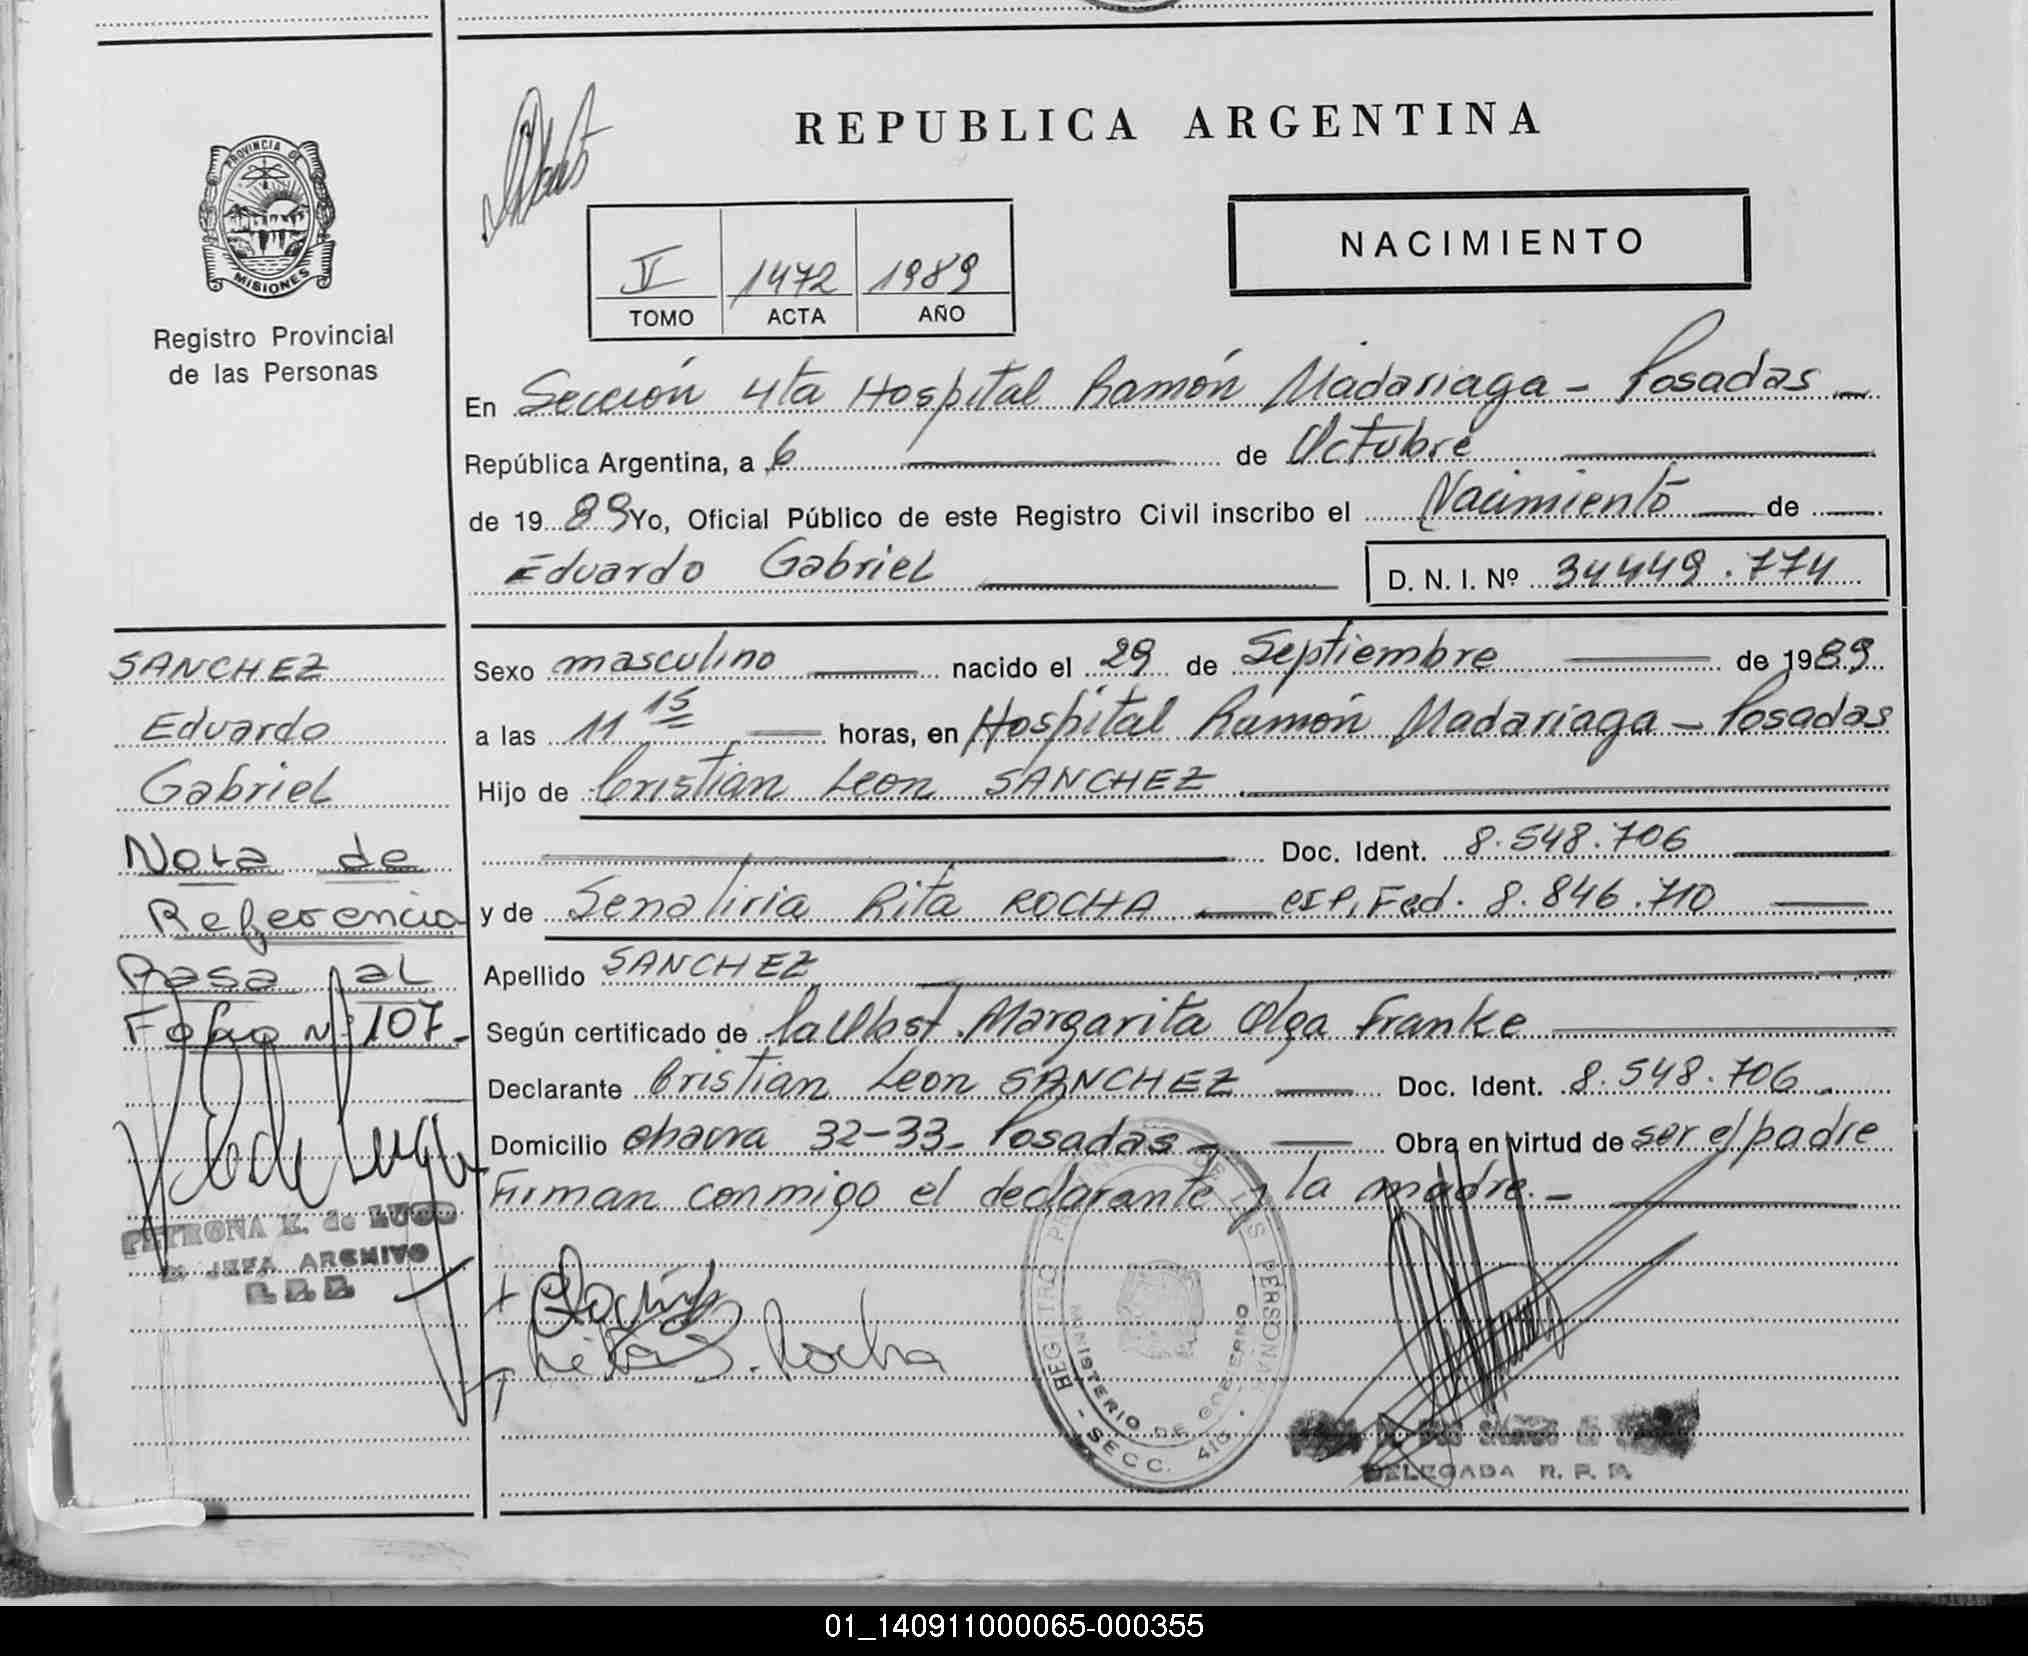 REPUBLICA ARGENTINA
PROVINCIA DE
MISIONES
Registro Provincial
de las Personas
V 1472 1989
TOMO ACTA AÑO
NACIMIENTO
En Sección 4ta Hospital Ramón Madariaga - Posadas
República Argentina, a 6 de Octubre
de 19 89 Yo, Oficial Público de este Registro Civil inscribo el Nacimiento de
Eduardo Gabriel
D. N. I. Nº 34449.774
SANCHEZ
Eduardo
Gabriel
Nota de
Referencia
Pasa al
Folio Nº 107.-
PETRONA K. de LUGO
JEFA ARCHIVO
R. P. P.
Sexo masculino nacido el 29 de Septiembre de 1989
a las 11 15 horas, en Hospital Ramón Madariaga - Posadas
Hijo de Cristian Leon SANCHEZ
Doc. Ident. 8.548.706
y de Rita ROCHA Fed. 8.846.710
Apellido SANCHEZ
Según certificado de la Obst. Margarita Olga Franke
Declarante Cristian Leon SANCHEZ Doc. Ident. 8.548.706
Domicilio chacra 32-33- Posadas- Obra en virtud de ser el padre
Firman conmigo el declarante y la madre.-
Rita S. Rocha
REGISTRO PROVINCIAL DE LAS PERSONAS
MINISTERIO DE GOBIERNO
- SECC. 4ta. -
DELEGADA R. P. P.
01_140911000065-000355